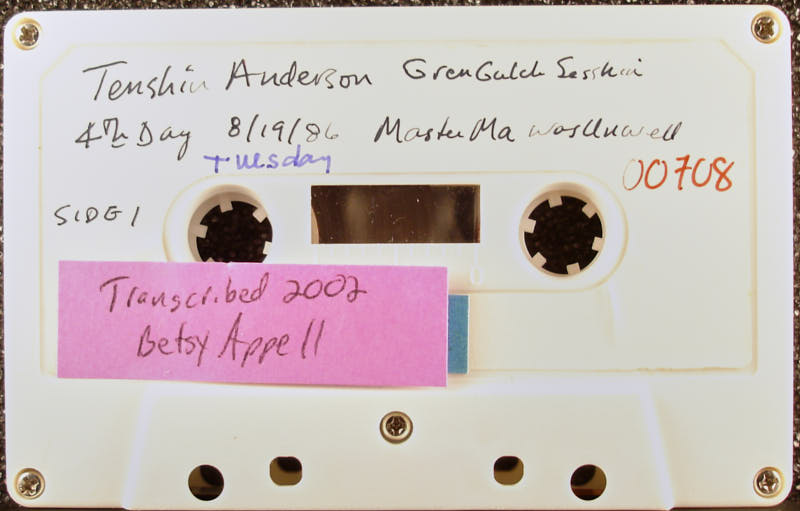 Tenshin Anderson GrenGulch Sesshin
4th Day 8/19/86 Master Ma was Unwell
Tuesday
00708
SIDE 1
Transcribed 2002
Betsy Appell